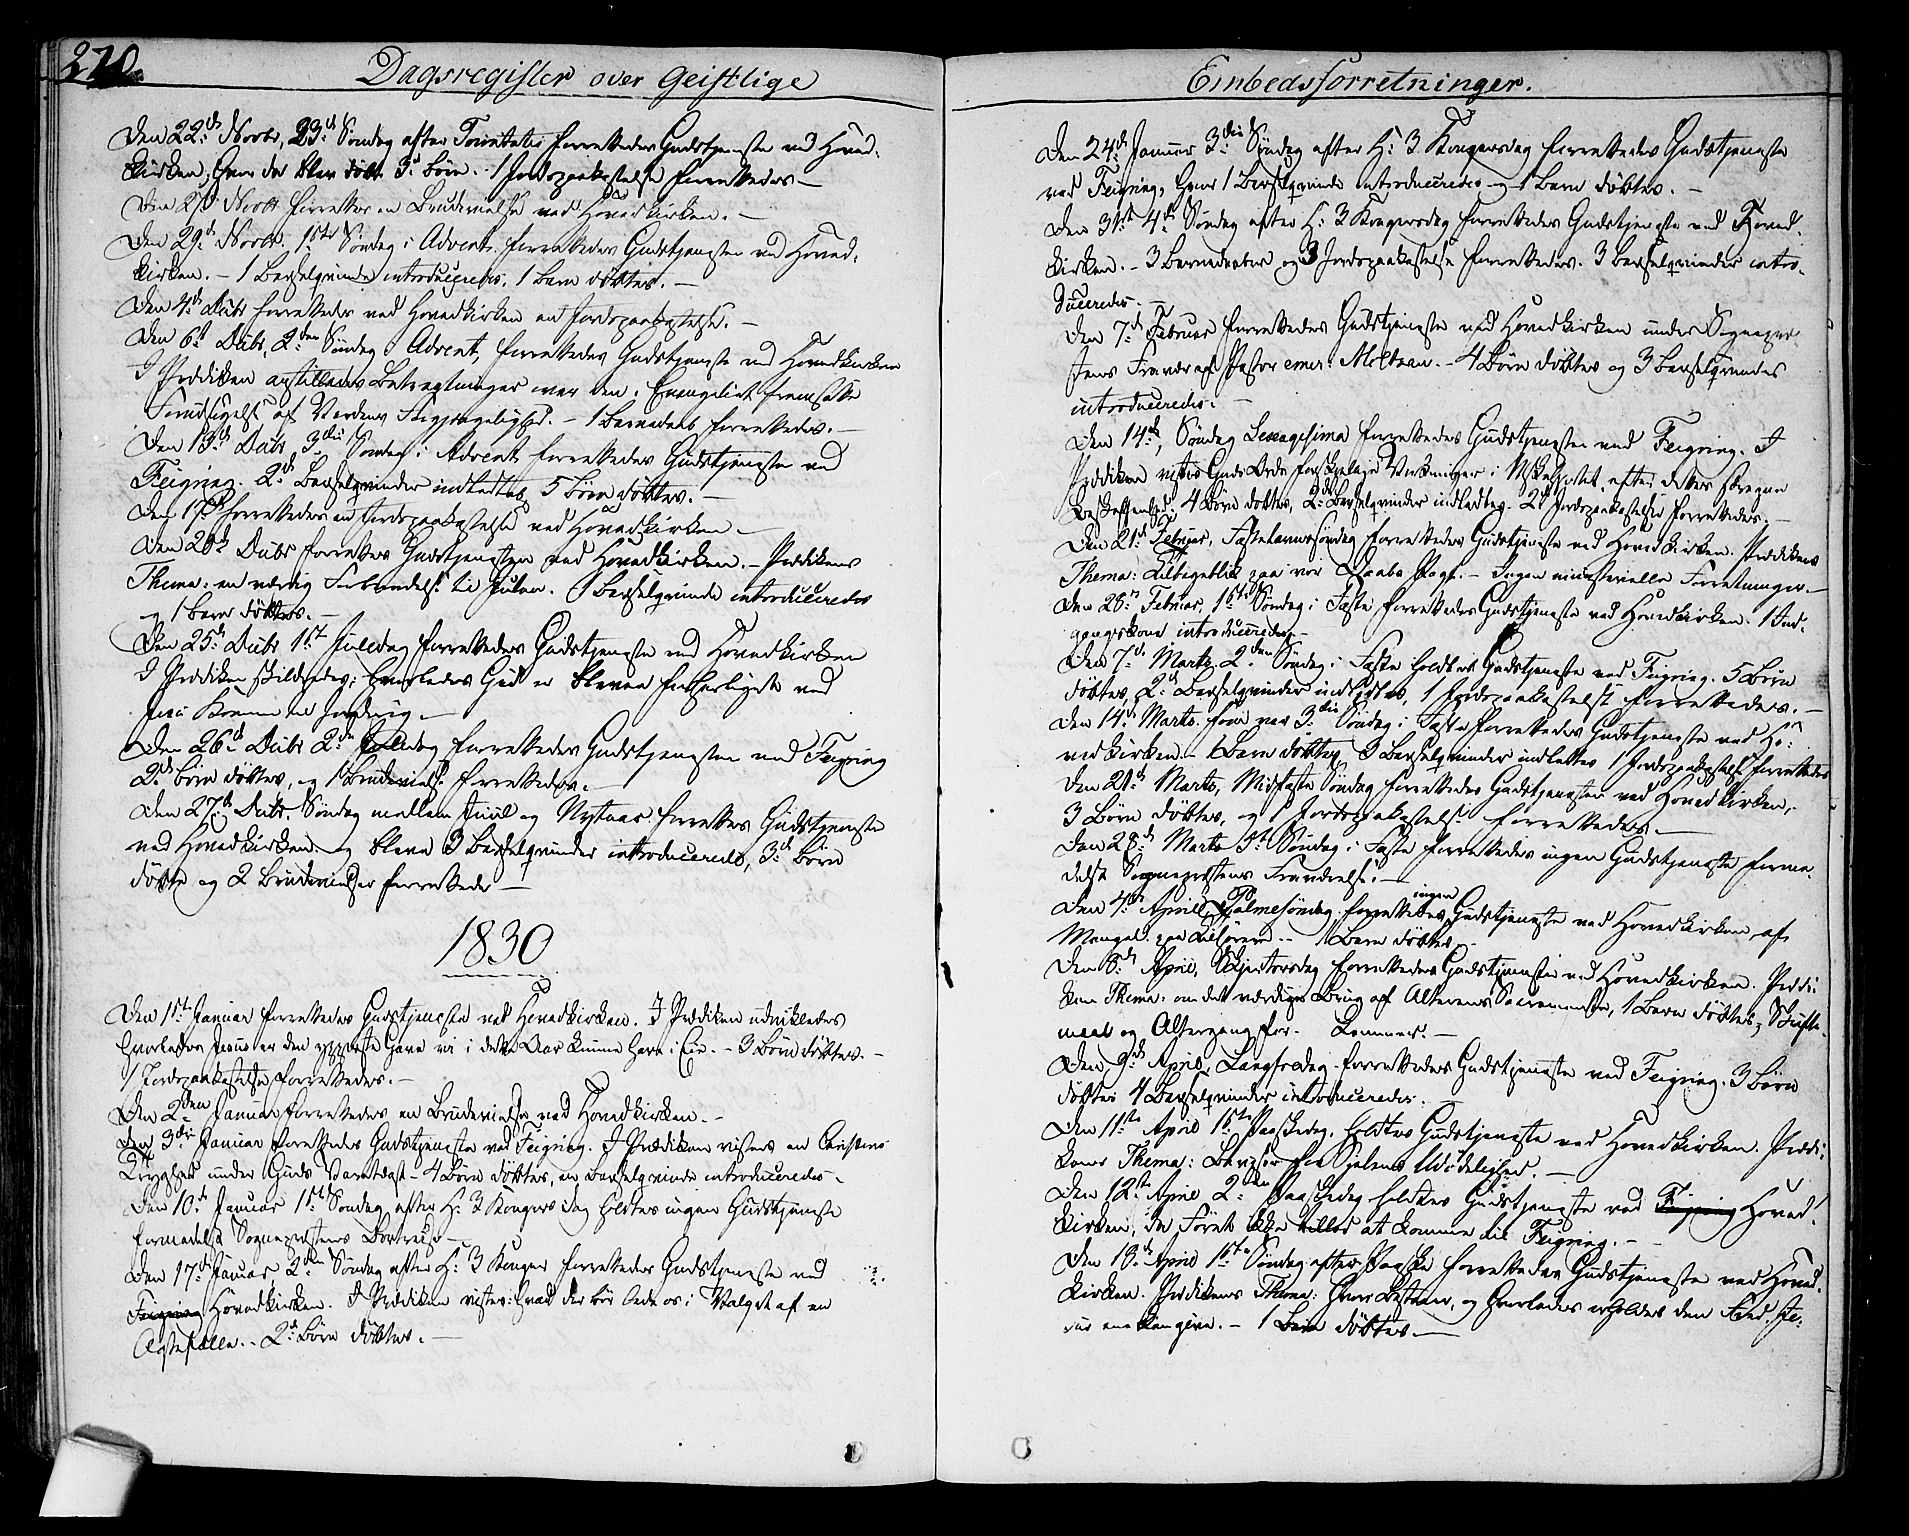 270.
Dagsregister over Geistlige
Den 22de Novbr, 23de Søndag efter Trinitatis forrettedes Gudstjeneste ved Hoved-
kirken, hvor der blev døbt 3de Børn. - 1 Jordspaakastelse forrettedes. -
Den Novbr forrettes en Brudevielse ved Hovedkirken. -
Den 29de Novbr. 1ste Søndag i Advent forrettedes Gudstjenesten ved Hoved-
kirken. - 1 Barselqvinde introduceredes, 1 Barn døbtes. -
Den 4de Decbr forrettedes ved Hovedkirken en Jordspaakastelse. -
Den 6te Decbr, 2den Søndag i Advent, forrettedes Gudstjeneste ved Hovedkirken
I Prædiken anstilledes Betragtninger over den i Evangeliet fremsatte
Forudsigelse af Verdens Forgjængelighed. - 1 Barnedaab forrettedes. -
Den 13de Decbr 3die Søndag i Advent forrettedes Gudstjeneste ved
Feigring. 2de Barselqvinder indledtes, 5 Børn døbtes. -
Den 17de forrettedes en Jordspaakastelse ved Hovedkirken -
Den 20de Decbr forrettes Gudstjenesten ved Hovedkirken. - Prædikens
Thema: en værdig Forberedelse til Julen. 1 Barselqvinde introduceredes
og 1 Barn døbtes. -
Den 25de Decbr 1ste Juledag forrettedes Gudstjeneste ved Hovedkirken
I Prædiken skildredes: hvorledes Gud er bleven forherliget ved
Jesu Komme til Jorderig. -
Den 26de Decbr 2den Juledag forrettedes Gudstjenesten ved Feigring
2de Børn døbtes, og 1 Brudevielse forrettedes. -
Den 27de Decbr. Søndag mellem Juul og Nytaar forrettes Gudstjeneste
ved Hovedkirken og bleve 3 Barselqvinder introducerede, 3de Børn
døbte og 2 Brudevielser forrettede -
1830
Den 1ste Januar forrettedes Gudstjenesten ved Hovedkirken. I Prædiken udvikledes
hvorledes Jesus er den ypperste Gave vi i dette Aar kunne have i Eie. - 3 Børn døbtes. -
1 Jordspaakastelse forrettedes. -
Den 2den Januar forrettedes en Brudevielse ved Hovedkirken. -
Den 3die Januar forrettedes Gudstjeneste ved Feigring. I Prædiken vistes en Christens
Tryghed under Guds Varetægt - 4 Børn døbtes, en Barselqvinde introduceredes. -
Den 10de Januar 1ste Søndag efter H: 3 Kongers dag holdtes ingen Gudstjeneste
formedelst Sognepræstens Bortreise -
Den 17de Januar, 2den Søndag efter H: 3 Konger forrettedes Gudstjeneste ved
Feigring Hovedkirken. I Prædiken vistes: hvad der bør lede os i Valget af en
Ægtefælle. - 2de Børn døbtes. -
Embedsforretninger.
Den 24de Januar 3die Søndag efter H: 3 Kongersdag forrettedes Gudstjeneste
ved Feigring, hvor 1 Barselqvinde introduceredes og 1 Barn døbtes. -
Den 31te 4de Søndag efter H: 3 Kongersdag forrettedes Gudstjeneste ved Hoved-
kirken. - 3 Barnedaaber og 3 Jordspaakastelse forrettedes. 3 Barselqvinder intro-
duceredes. -
Den 7de Februar forrettedes Gudstjeneste ved Hovedkirken under Sognepræ-
stens Fravær af Pastor emer: Meltzan. - 4 Børn døbtes og 3 Barselqvinder
introduceredes. -
Den 14de, Søndag Sexagesima forrettedes Gudstjenesten ved Feigring. I
Prædiken vistes Guds Ords forskjelige Virkninger i Mskehiertet, efter dettes foregaaende
Beskaffenhed. 4 Børn døbtes, 2de Barselqvinder indledtes. 2de Jordspaakastelser forrettedes. -
Den 21de Februar, Fastelavnssøndag forrettedes Gudstjeneste ved Hovedkirken. Prædikens
Thema: Tilbageblik paa vor Daabs Pagt. - Ingen ministerielle Forretninger. -
Den 28de Februar, 1ste Søndag i Faste forrettedes Gudstjeneste ved Hovedkirken. 1 Ind-
gangskone introduceredes. -
Den 7de Marts 2den Søndag i Faste holdtes Gudstjeneste ved Feigring. 5 Børn
døbtes, 2de Barselqvinder indledtes, 1 Jordspaakastelse forrettedes. -
Den 14de Marts som var 3die Søndag i Faste forrettedes Gudstjeneste ved Ho-
vedkirken. - 1 Barn døbtes, 3 Barselqvinder indledtes 1 Jordspaakastelse forrettedes
Den 21de Marts, Midfaste Søndag forrettedes Gudstjenesten ved Hovedkirken,
3 Børn døbtes, og 1 Jordspaakastelse forrettedes. -
Den 28de Marts 5te Søndag i Faste forrettedes ingen Gudstjeneste forme-
delst Sognepræstens Fraværelse. -
Den 4de April Palmesøndag forrettedes ingen Gudstjeneste ved Hovedkirken af
Mangel paa Tilhørere. - 1 Barn døbtes. -
Den 8de April, Skjertorsdag forrettedes Gudstjeneste ved Hovedkirken. Prædi-
kens Thema: om det værdige Brug af Alterens Sacramente, 1 Barn døbtes, Skrifte-
maal og Altergang for Lemmer. -
Den 9de April, Langfredag forrettedes Gudstjeneste ved Feigring. 3 Børn
døbtes 4 Barselqvinder introduceredes. -
Den 11te April 1ste Paaskedag, holdtes Gudstjeneste ved Hovedkirken. Prædi-
kens Thema: Beviser for Sjelens Udødelighed. -
Den 12te April 2den Paaskedag holdtes Gudstjeneste ved Feigring Hoved-
kirken, da Føret ikke tillod at komme til Feigring. -
Den 18de April 1ste Søndag efter Paaske forrettedes Gudstjeneste ved Hoved-
kirken. Prædikens Thema: hvori bestaaer, og hvorledes erholdes den Fred, Je-
sus ene kan give. - 1 Barn døbtes. -